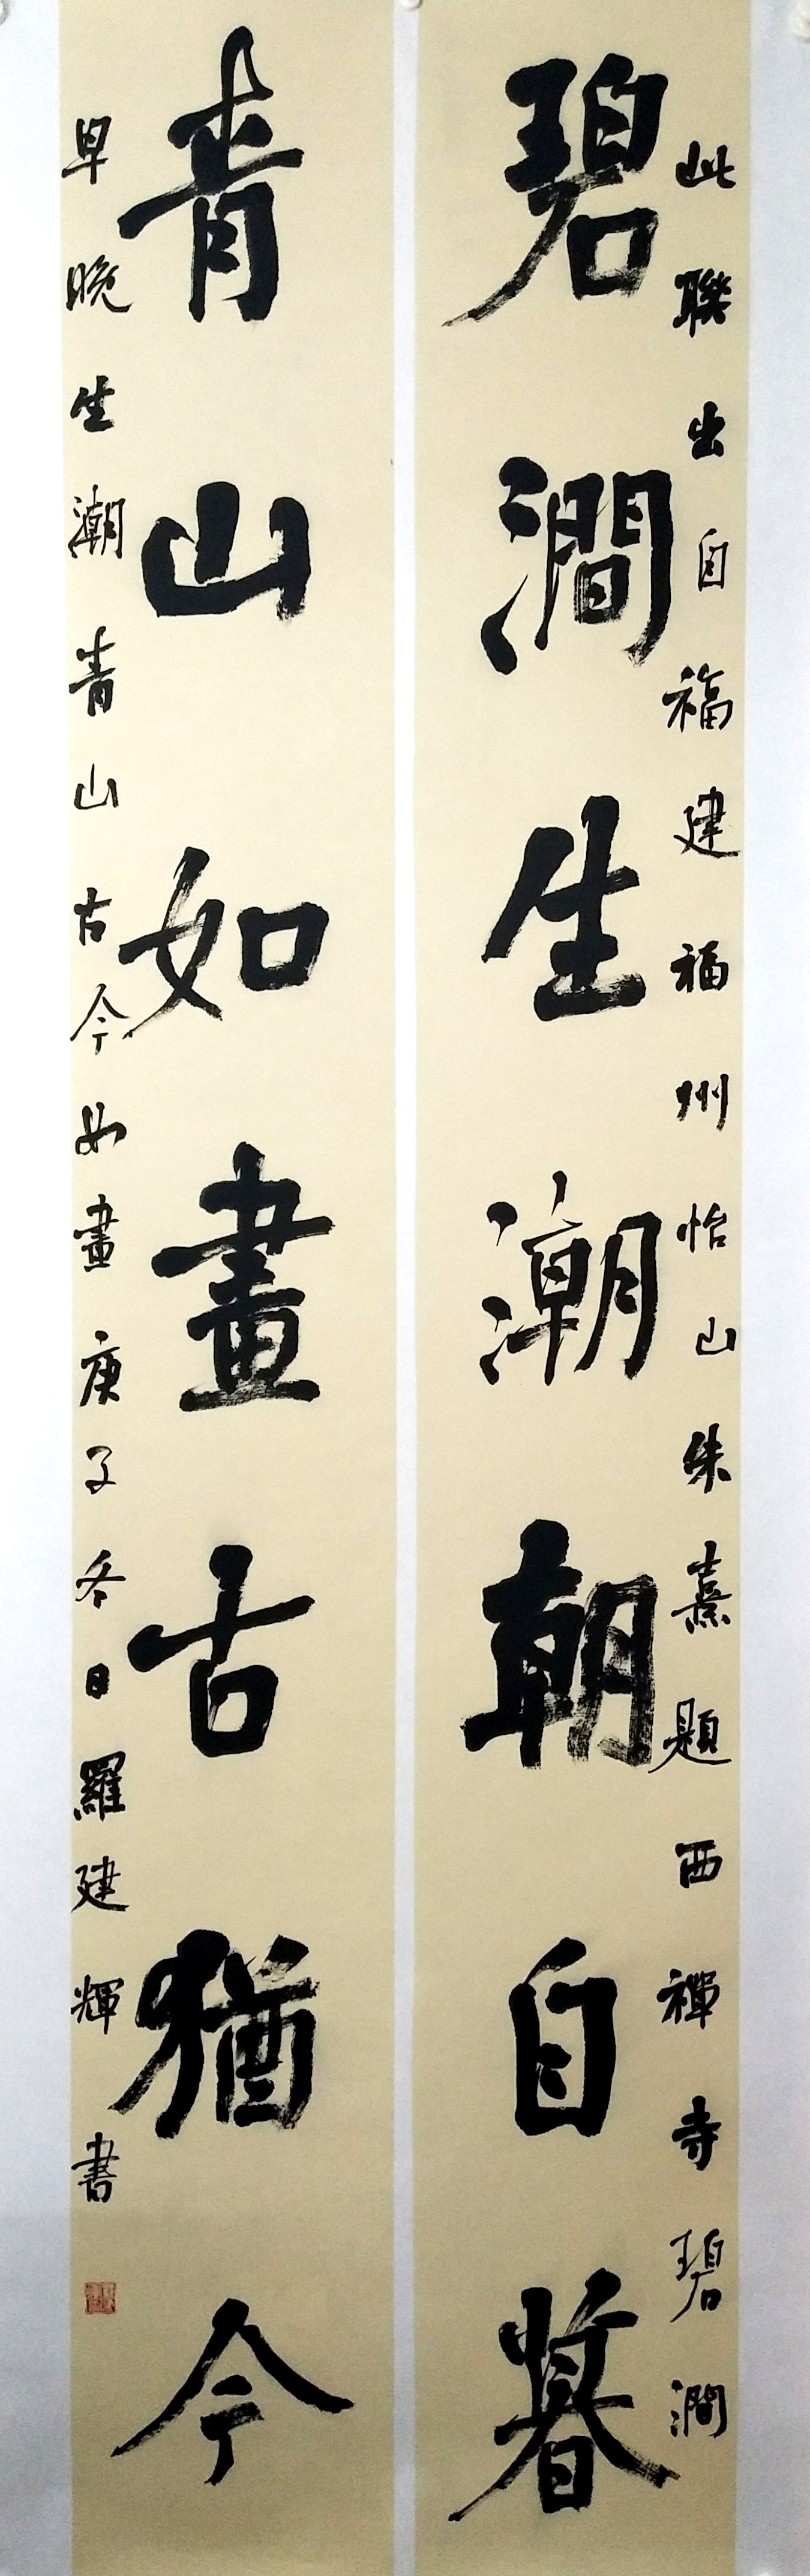 此聯出自福建福州怡山朱熹題西禪寺碧澗
碧澗生潮朝自暮
青山如畫古猶今
早晚生潮青山古今如畫庚子冬日羅建輝書